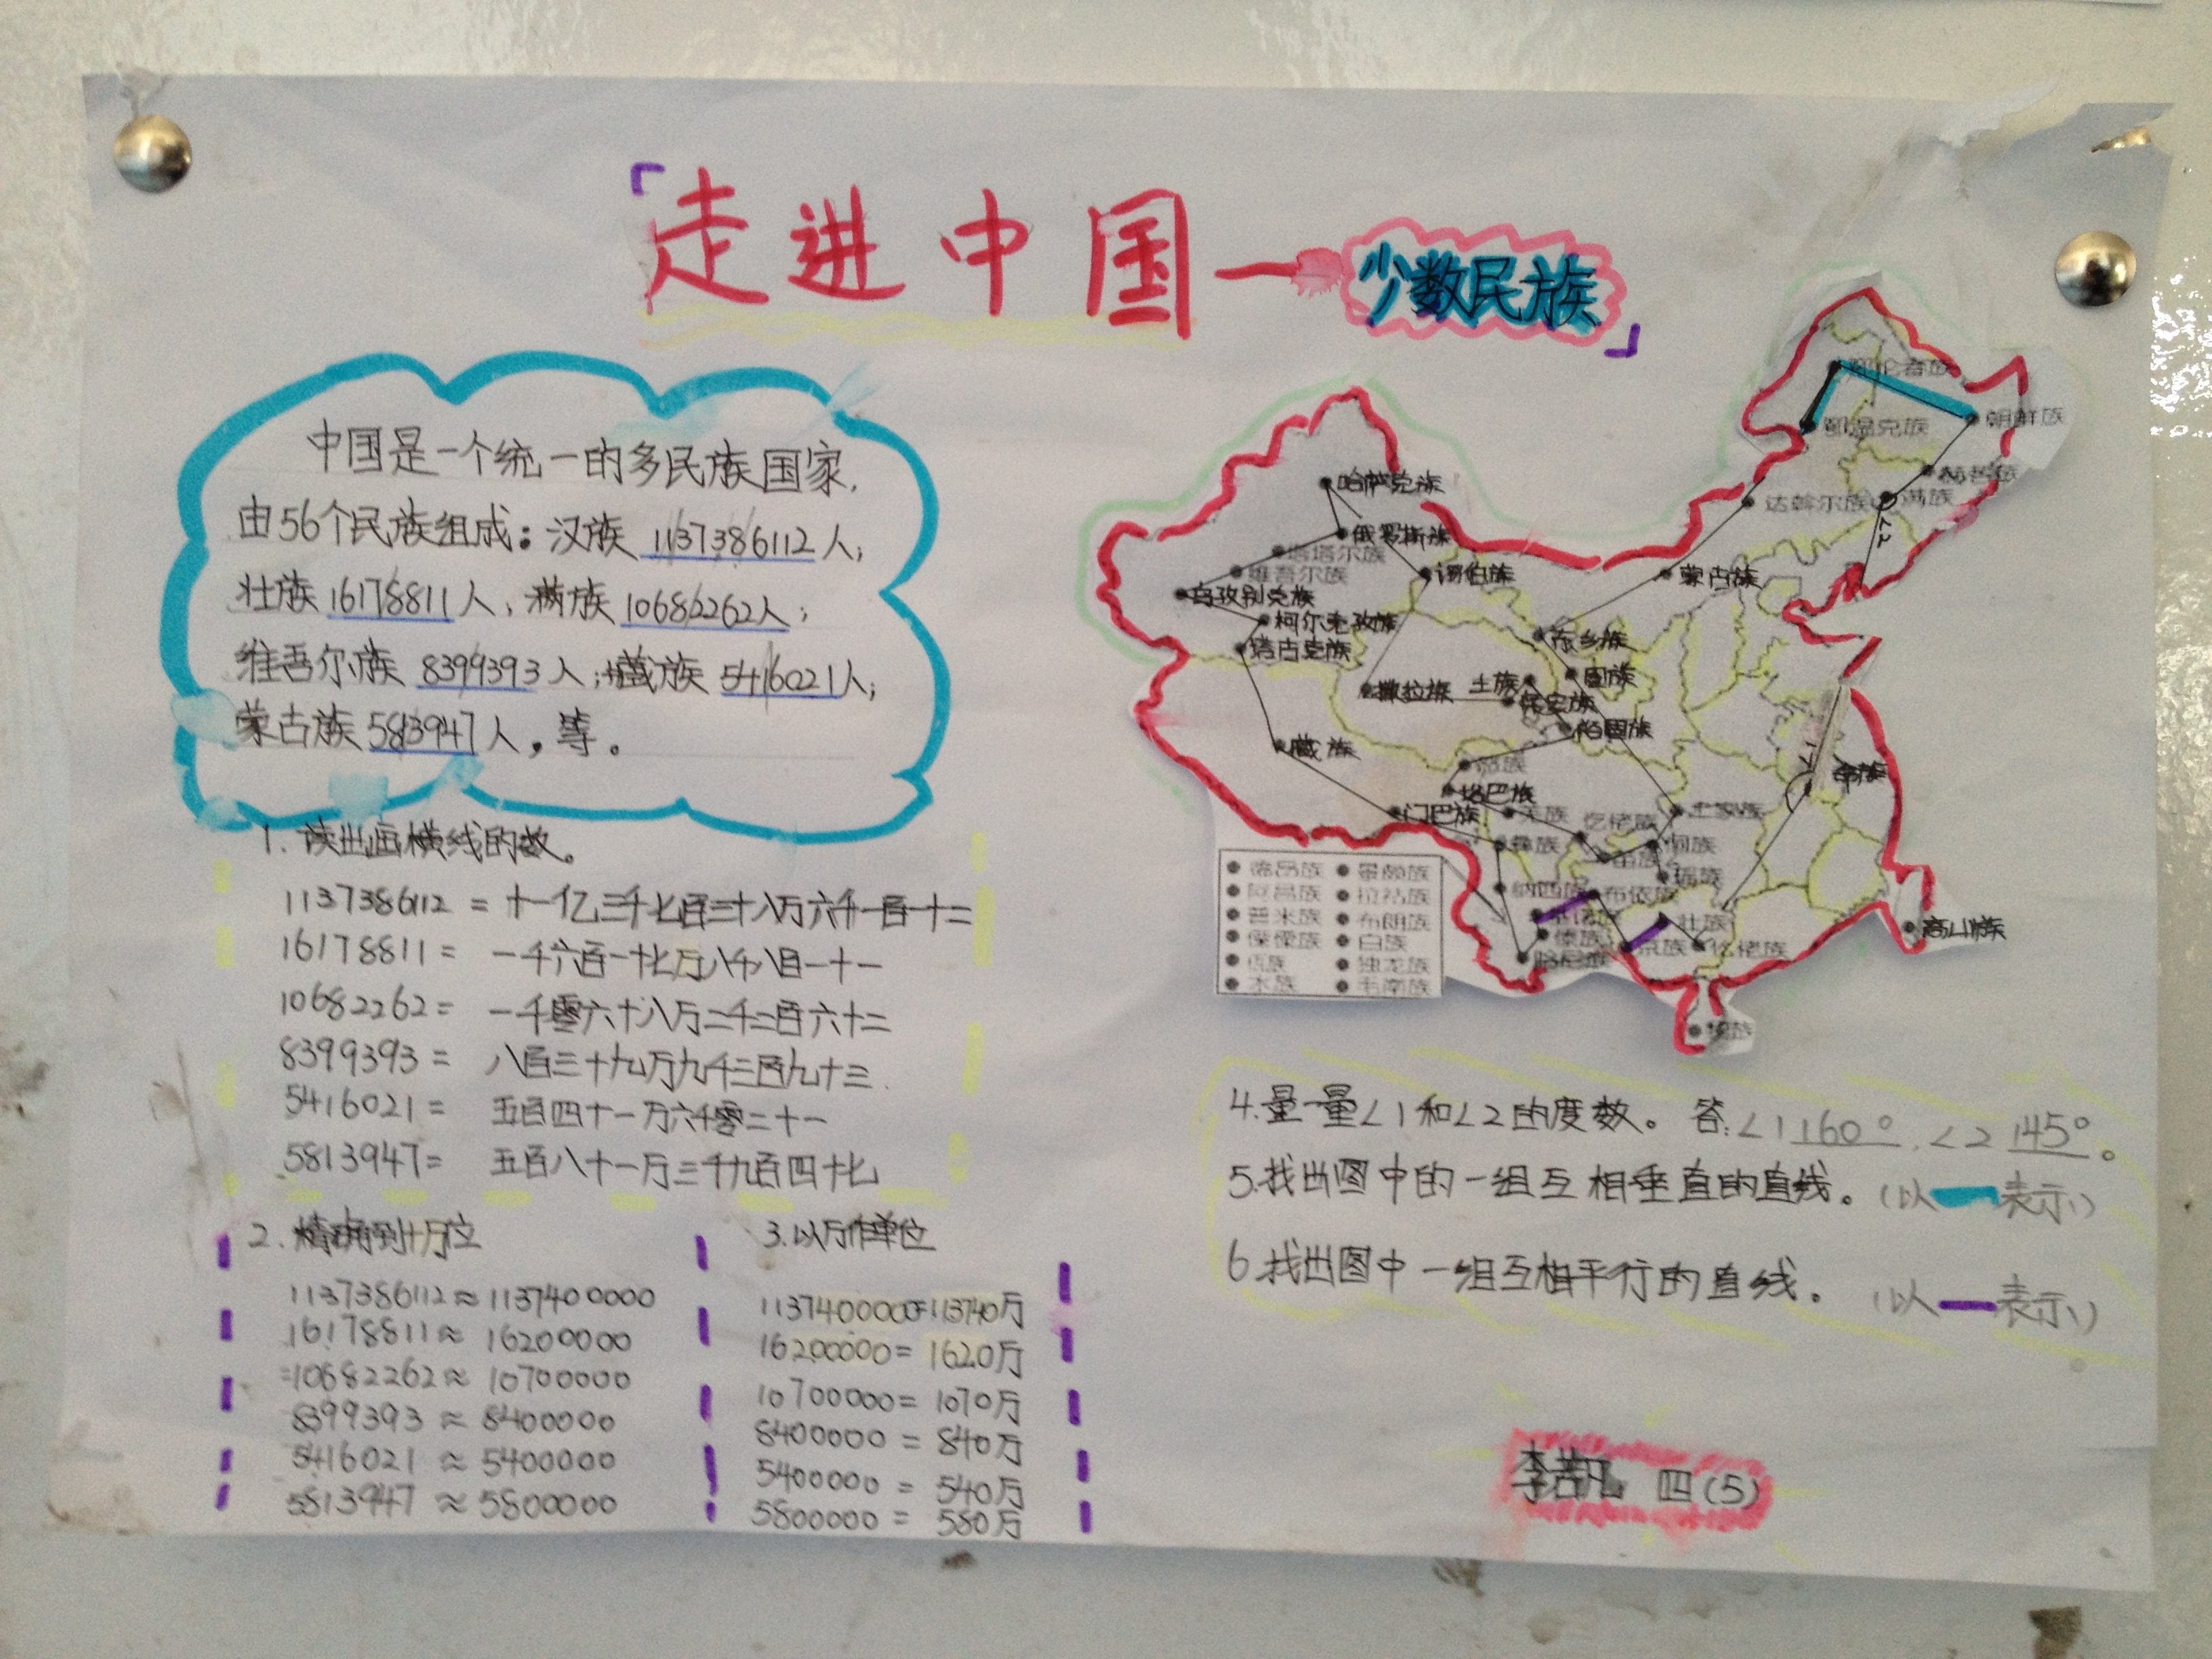 「走进中国—少数民族」
中国是一个统一的多民族国家,
由56个民族组成:汉族 1137386112人;
壮族16178811人;满族10682262人;
维吾尔族 8399393人;藏族 5416021人;
蒙古族5813947人,等。
1.读出画横线的数。
1137386112=十一亿三千七百三十八万六千一百一十二
16178811=一千六百一十七万八千八百一十一
10682262=一千零六十八万二千二百六十二
8399393=八百三十九万九千三百九十三.
5416021=五百四十一万六千零二十一
5813947=五百八十一万三千九百四十七
2.精确到十万位
1137386112≈1137400000
16178811≈16200000
10682262≈10700000
8399393≈8400000
5416021≈5400000
5813947≈5800000
3.以万作单位
1137400000=113740万
16200000=1620万
10700000=1070万
8400000=840万
5400000=540万
5800000=580万
鄂伦春族
朝鲜族
鄂温克族
赫哲族
达斡尔族
满族
∠2
哈萨克族
俄罗斯族
塔塔尔族
维吾尔族
锡伯族
蒙古族
乌孜别克族
柯尔克孜族
塔吉克族
东乡族
回族
撒拉族
土族
保安族
裕固族
藏族
羌族
珞巴族
门巴族
土家族
仡佬族
彝族
苗族
侗族
瑶族
纳西族
布依族
傣族
壮族
哈尼族
京族
仫佬族
∠1
畲族
高山族
黎族
德昂族
景颇族
阿昌族
拉祜族
普米族
布朗族
傈僳族
白族
佤族
独龙族
水族
毛南族
4.量一量∠1和∠2的度数。 答:∠1 160°,∠2 145°。
5.找出图中的一组互相垂直的直线。(以 表示)
6.找出图中一组互相平行的直线。(以 表示)
四(5)